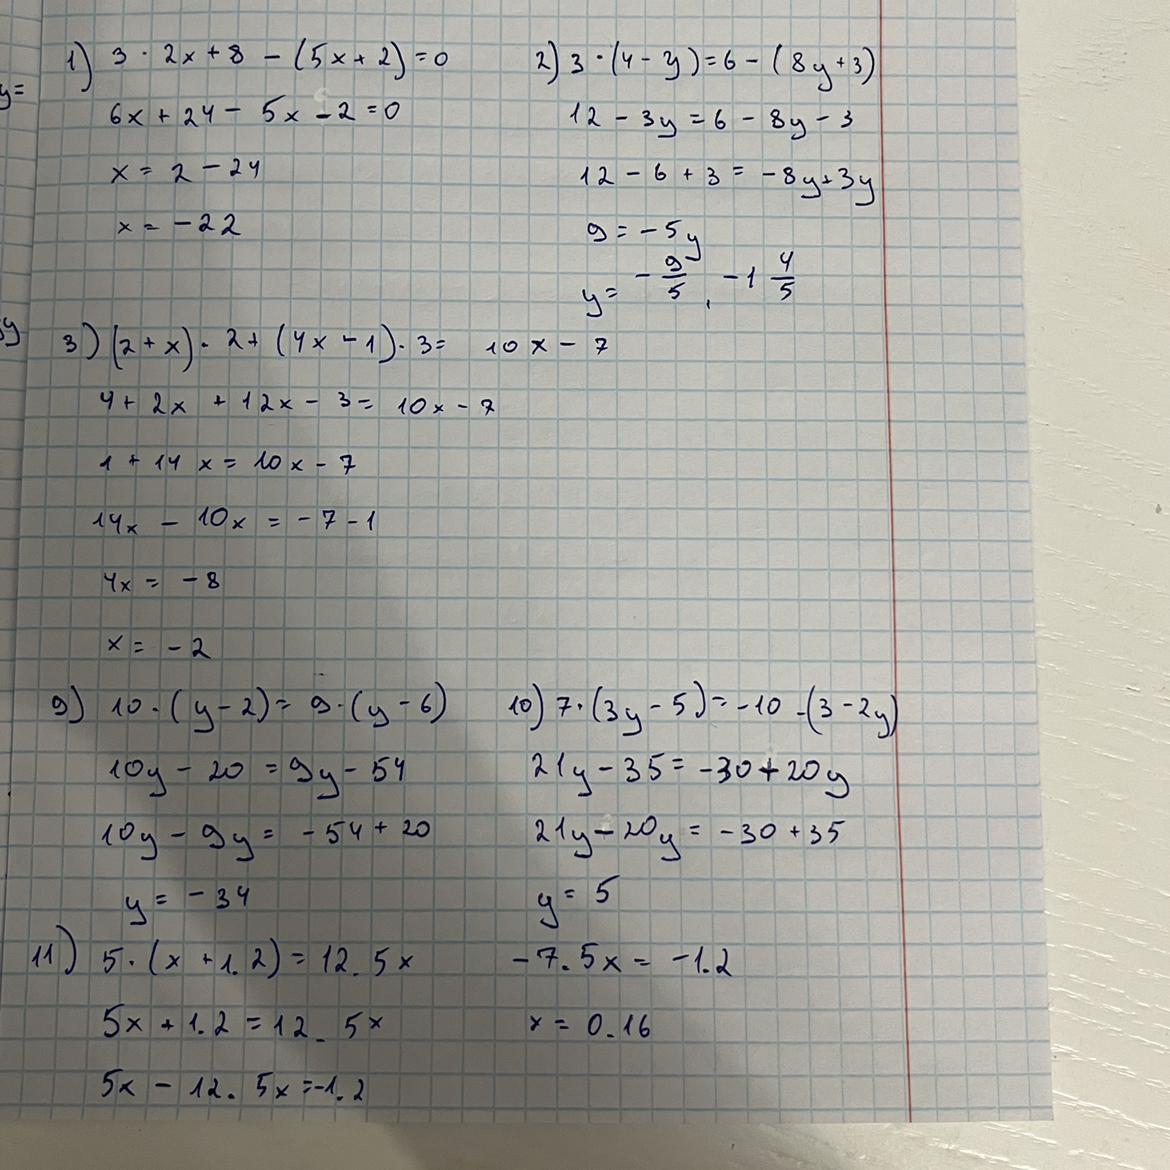 y=
1) 3 · 2x + 8 - (5x + 2) = 0
6x + 24 - 5x - 2 = 0
x = 2 - 24
x = - 22
2) 3 · (4 - y) = 6 - (8y + 3)
12 - 3y = 6 - 8y - 3
12 - 6 + 3 = -8y + 3y
9 = - 5y
y = - 9/5 , - 1 4/5
3) (2 + x) · 2 + (4x - 1) · 3 = 10x - 7
4 + 2x + 12x - 3 = 10x - 7
1 + 14x = 10x - 7
14x - 10x = - 7 - 1
4x = - 8
x = - 2
9) 10 · (y - 2) = 9 · (y - 6)
10y - 20 = 9y - 54
10y - 9y = - 54 + 20
y = - 34
10) 7 · (3y - 5) = -10 - (3 - 2y)
21y - 35 = -30 + 20y
21y - 20y = - 30 + 35
y = 5
11) 5 · (x + 1.2) = 12.5x
5x + 1.2 = 12.5x
5x - 12.5x = -1.2
- 7.5x = -1.2
x = 0.16